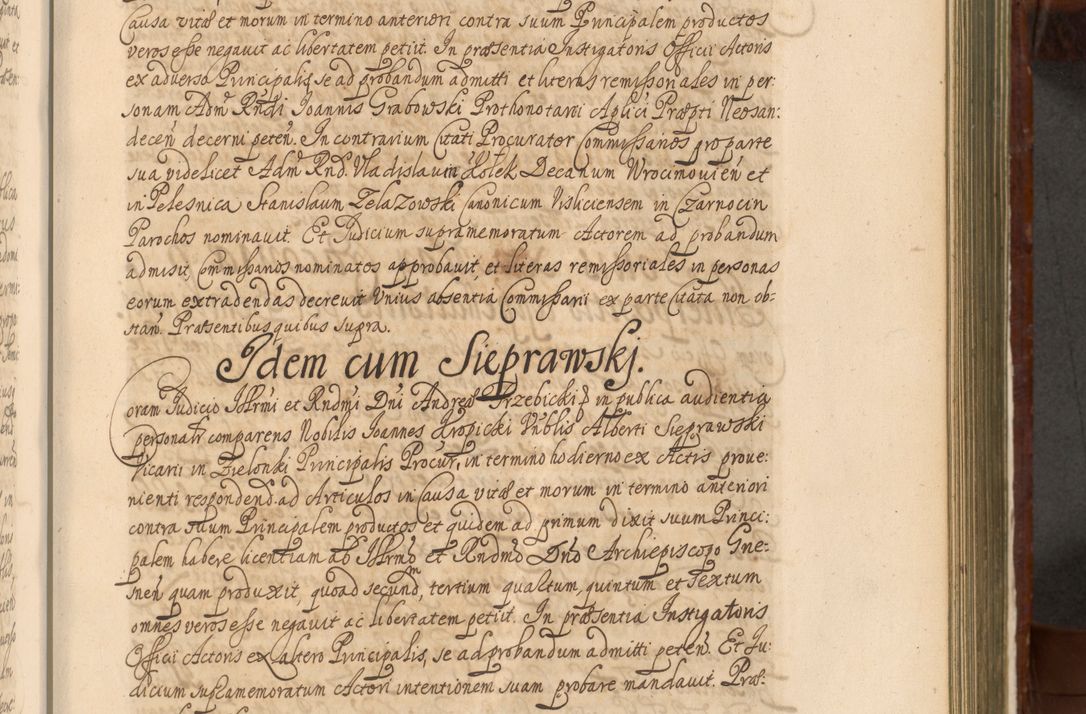 Causa vitæ et morum in termino anteriori contra suum Principalem productos
veros esse negavit ac libertatem petiit. In præsentia Instigatoris Officii Actoris
ex adverso Principalis, se ad probandum admitti et literas remissoriales in per:
sonam Adm Rndi Joannis Grabowski Prothonotarii Aplici Præpti Neosan:
deceñ decerni peteñ. In contrarium Citati Procurator Commissarios pro parte
sua videlicet Adm Rnd. Vladislaum Decanum Wrocimovieñ et
in Pelesnica Stanislaum Zelazowski Canonicum Visliciensem in Czarnocin
Parochos nominavit. Et Judicium supramemoratum Actorem ad probandum
admisit, Commissarios nominatos approbavit, et literas remissoriales in personas
eorum extradendas decrevit Unius absentia Commissarii ex parte Citata non ob-
stañ. Præsentibus quibus supra.
Idem cum Sieprawskj.
Coram Judicio Illrmi et Rndmi Dni Andreæ Trzebicki in publica audientia
personalr comparens Nobilis Joannes Kropicki Vnblis Alberti Sieprawski
Vicarii in Zielonki Principalis Procur, in termino hodierno ex Actis prove:
nienti respondend. ad Articulos in Causa vitæ et morum in termino anteriori
contra suum Principalem productos et quidem ad primum dixit suum Princi:
palem habere licentiam ab Illrmo et Rndmo Dno Archiepiscopo Gne:
sneñ quam produxit, quoad secundm, tertium, qualtum, quintum et sextum
omnes veros esse negavit ac libertatem petiit. In præsentia Instigatoris
Officii Actoris ex altero Principalis, se ad probandum admitti peteñ. Et Ju:
dicium supramemoratum Actori intentionem suam probare mandavit. Præ: